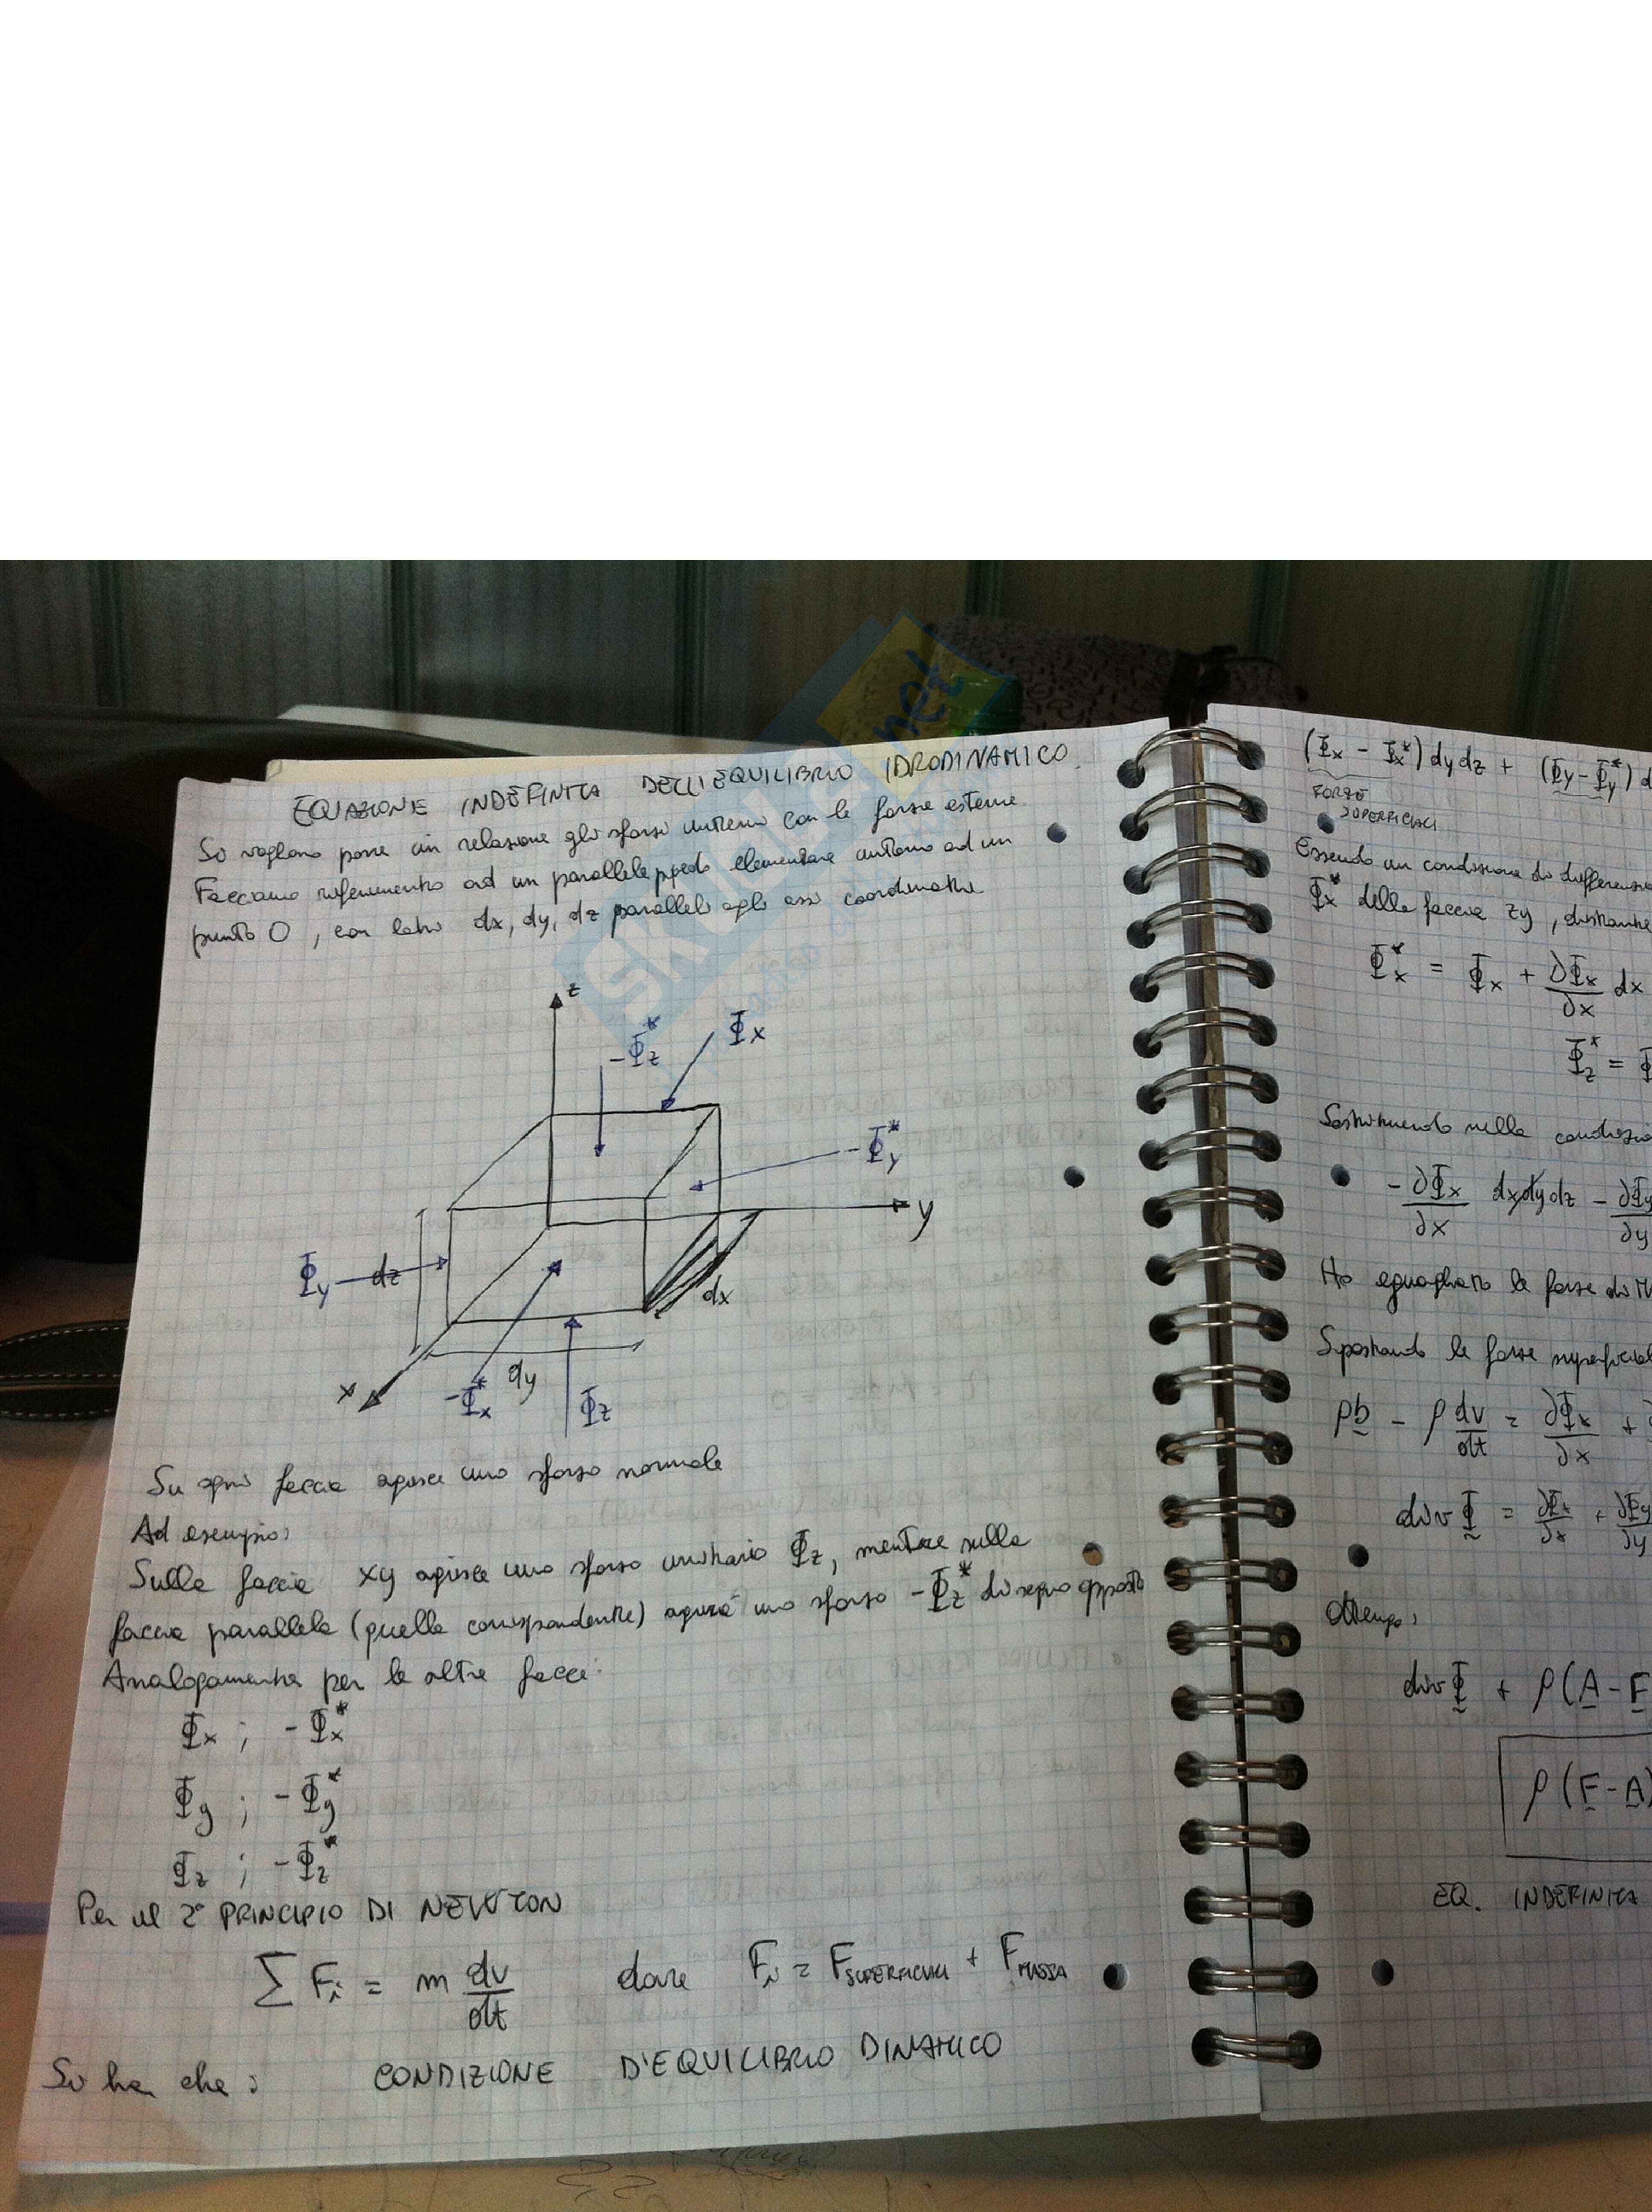 EQUAZIONE INDEFINITA DELL'EQUILIBRIO IDRODINAMICO
Si vogliono porre in relazione gli sforzi interni con le forze esterne
Facciamo riferimento ad un parallelepipedo elementare intorno ad un
punto O, con lati dx, dy, dz paralleli agli assi coordinati
z
-Φz*
Φx
-Φy*
y
Φy
dz
dx
x
-Φx*
dy
Φz
Su ogni faccia agisce uno sforzo normale
Ad esempio:
Sulla faccia xy agisce uno sforzo unitario Φz, mentre sulla
faccia parallela (quella corrispondente) agirà uno sforzo -Φz* di segno opposto
Analogamente per le altre facce:
Φx ; -Φx*
Φy ; -Φy*
Φz ; -Φz*
Per il 2° PRINCIPIO DI NEWTON
∑ Fi = m dv/dt dove Fi = FSUPERFICIALI + FMASSA
Si ha che: CONDIZIONE D'EQUILIBRIO DINAMICO
(Φx - Φx*) dydz + (Φy - Φy*) d
FORZE
SUPERFICIALI
Essendo in condizione di
Φx* della faccia zy, distante
Φx* = Φx + ∂Φx/∂x dx
Φz* = Φ
Sostituendo nella
- ∂Φx/∂x dxdydz - ∂Φy/∂y
Ho eguagliato le forze di
Spostando le forze
ρb - ρ dv/dt = ∂Φx/∂x +
div Φ = ∂Φx/∂x + ∂Φy/∂y
Ottengo:
div Φ + ρ(A - F
ρ(F - A)
EQ. INDEFINITA
skuola.net